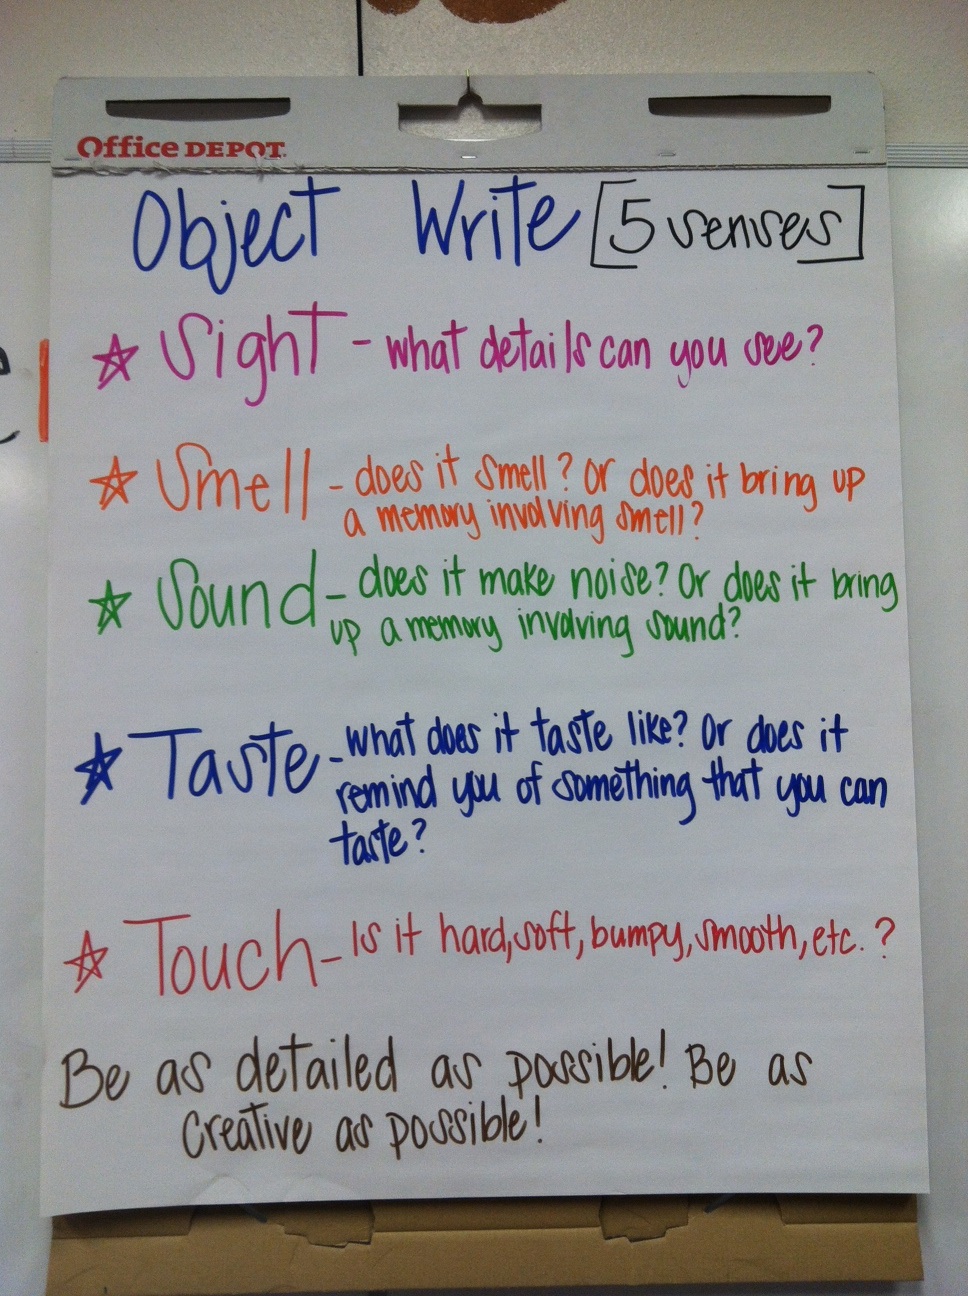 Office DEPOT.
Object Write [5 senses]
☆ Sight - what details can you see?
☆ Smell - does it smell? Or does it bring up
a memory involving smell?
☆ Sound - does it make noise? Or does it bring
up a memory involving sound?
☆ Taste - what does it taste like? Or does it
remind you of something that you can
taste?
☆ Touch - Is it hard, soft, bumpy, smooth, etc. ?
Be as detailed as possible! Be as
creative as possible!